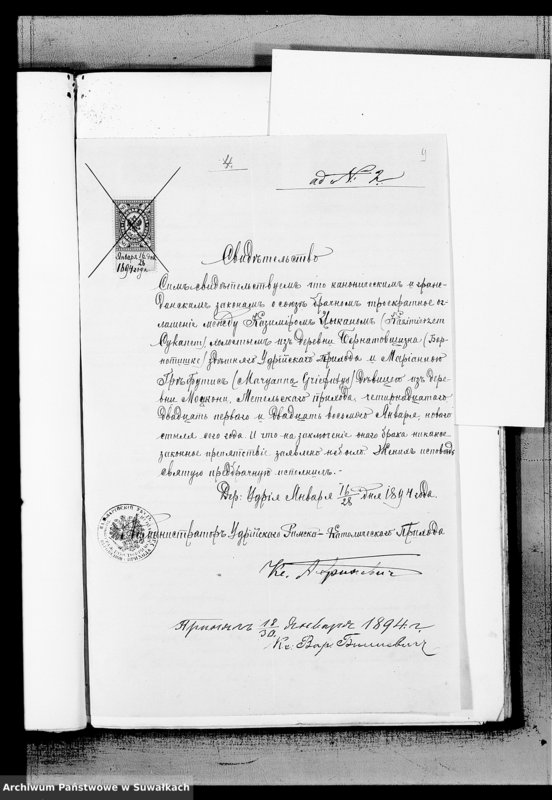 4.
9
ad N. 2.
Января 16/28 дня
1894 года
Свидѣтельство
Симъ свидѣтельствуемъ что каноническимъ и граж-
данскимъ законамъ о союзѣ брачномъ троекратное ог-
лашение между Казимiромъ Цыканомъ (Kazimierzem
холостымъ изъ деревни Бернатовщизна (Бер-
нотишке) Удрійского прихода и Маріанною
(Maryanna дѣвицею изъ дере-
вни Мошкони, Метельского прихода, четырнадцатаго
двадцать перваго и двадцать восьмаго Января, новаго
стиля сего года. И что на заключеніе онаго брака никакое
законное препятствіе заявлено не было. Женихъ исповѣдь
святую предбрачную исполнилъ.-
Дер. Удрія Января 16/28 дня 1894 года.
Администраторъ Удрійского Римско-Католического Прихода
Кс.
Принялъ 18/30 Января 1894 г.
Кс. Вар.
Archiwum Państwowe w Suwałkach